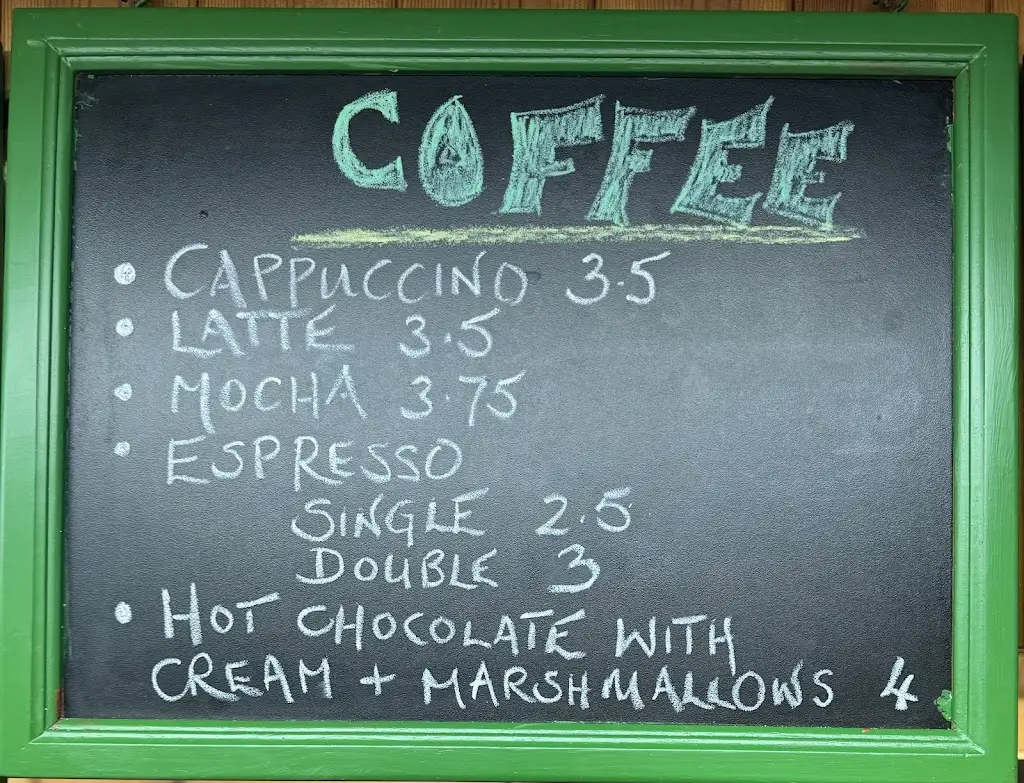 COFFEE
• CAPPUCCINO 3.5
• LATTE 3.5
• MOCHA 3.75
• ESPRESSO
SINGLE 2.5
DOUBLE 3
• HOT CHOCOLATE WITH
CREAM + MARSHMALLOWS 4